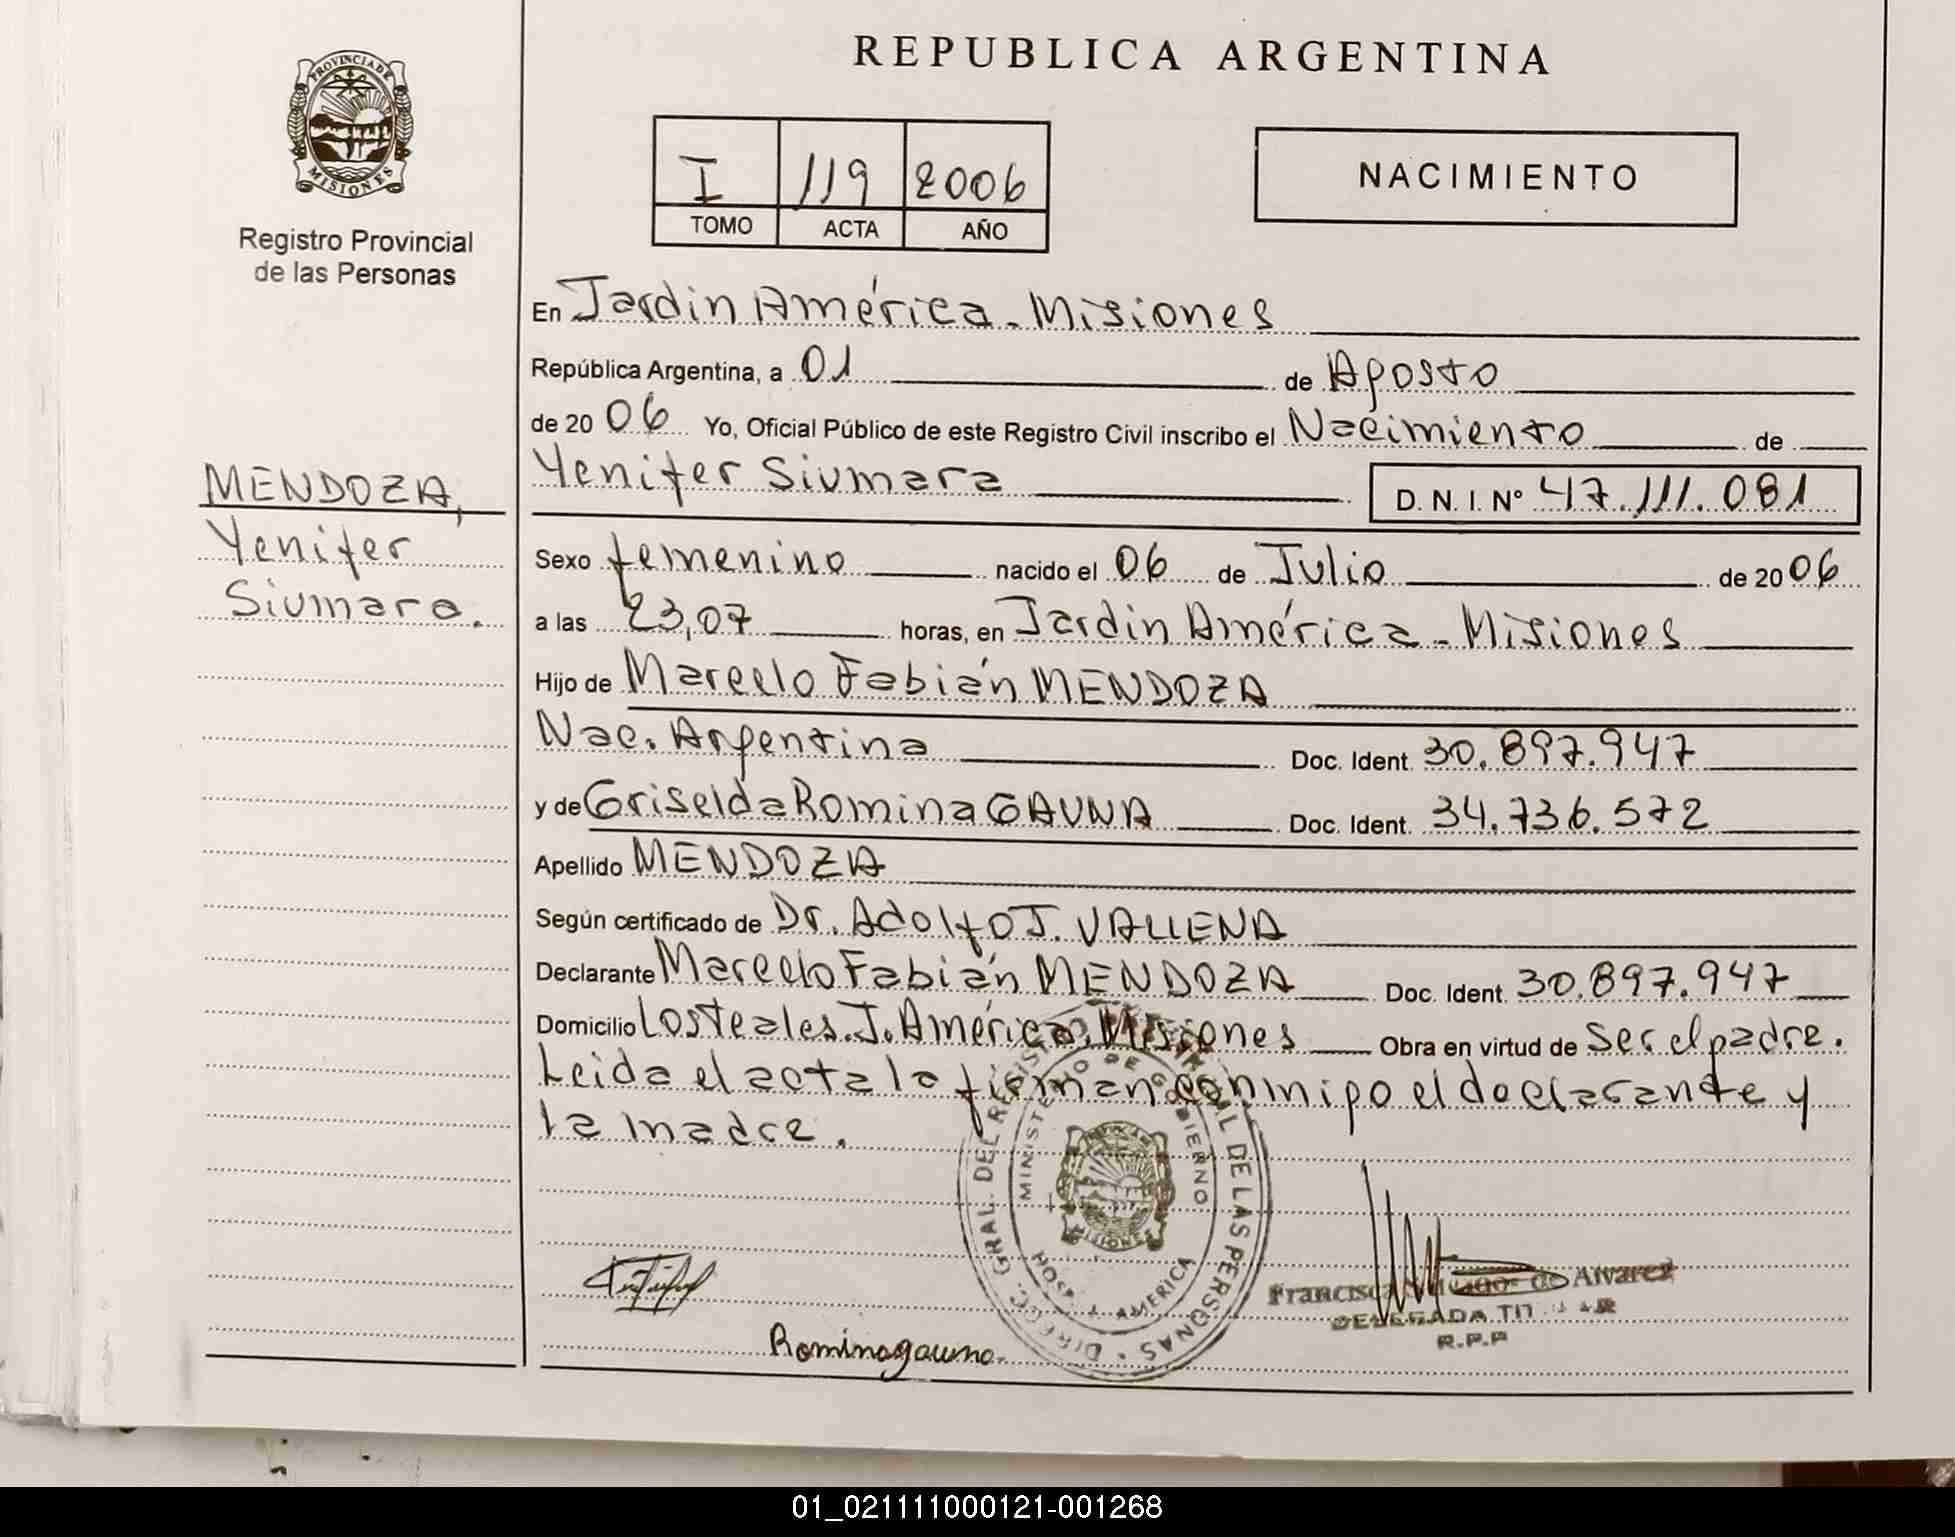 REPUBLICA ARGENTINA
PROVINCIA DE
MISIONES
Registro Provincial
de las Personas
I 119 2006
TOMO ACTA AÑO
NACIMIENTO
MENDOZA,
Yenifer
Siumara.
En Jardin América - Misiones
República Argentina, a 01 de Agosto
de 2006 Yo, Oficial Público de este Registro Civil inscribo el Nacimiento de
Yenifer Siumara D. N. I. Nº 47.111.081
Sexo femenino nacido el 06 de Julio de 2006
a las 23,07 horas, en Jardin América - Misiones
Hijo de Marcelo Fabián MENDOZA
Nac. Argentina Doc. Ident. 30.897.947
y de Griselda Romina GAUNA Doc. Ident. 34.736.572
Apellido MENDOZA
Según certificado de Dr. Adolfo J. VALLENA
Declarante Marcelo Fabián MENDOZA Doc. Ident. 30.897.947
Domicilio Los Teales. J. América. Misiones Obra en virtud de ser el padre.
Leida el acta la firman conmigo el declarante y
la madre.
DIRECC. GRAL. DEL REGISTRO CIVIL DE LAS PERSONAS
MINISTERIO DE GOBIERNO
MISIONES
HOSP. J. AMERICA
Romina gauna.
Francisca de Alvarez
DELEGADA TITULAR
R.P.P
01_021111000121-001268